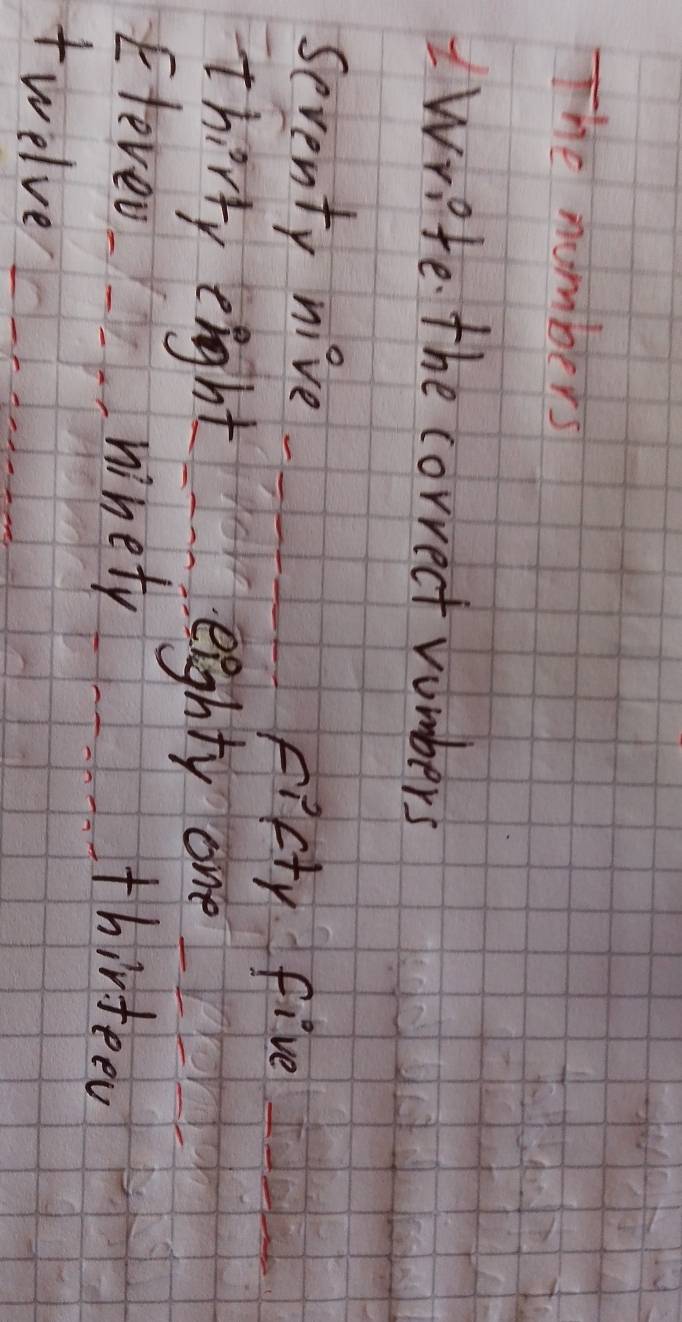 The numbers
1 Write the correct numbers
Seventy nine ------ Fifty five ------
Thirty eight ------ eighty one ------
Eleven ------ ninety ------ thirteen
twelve ------